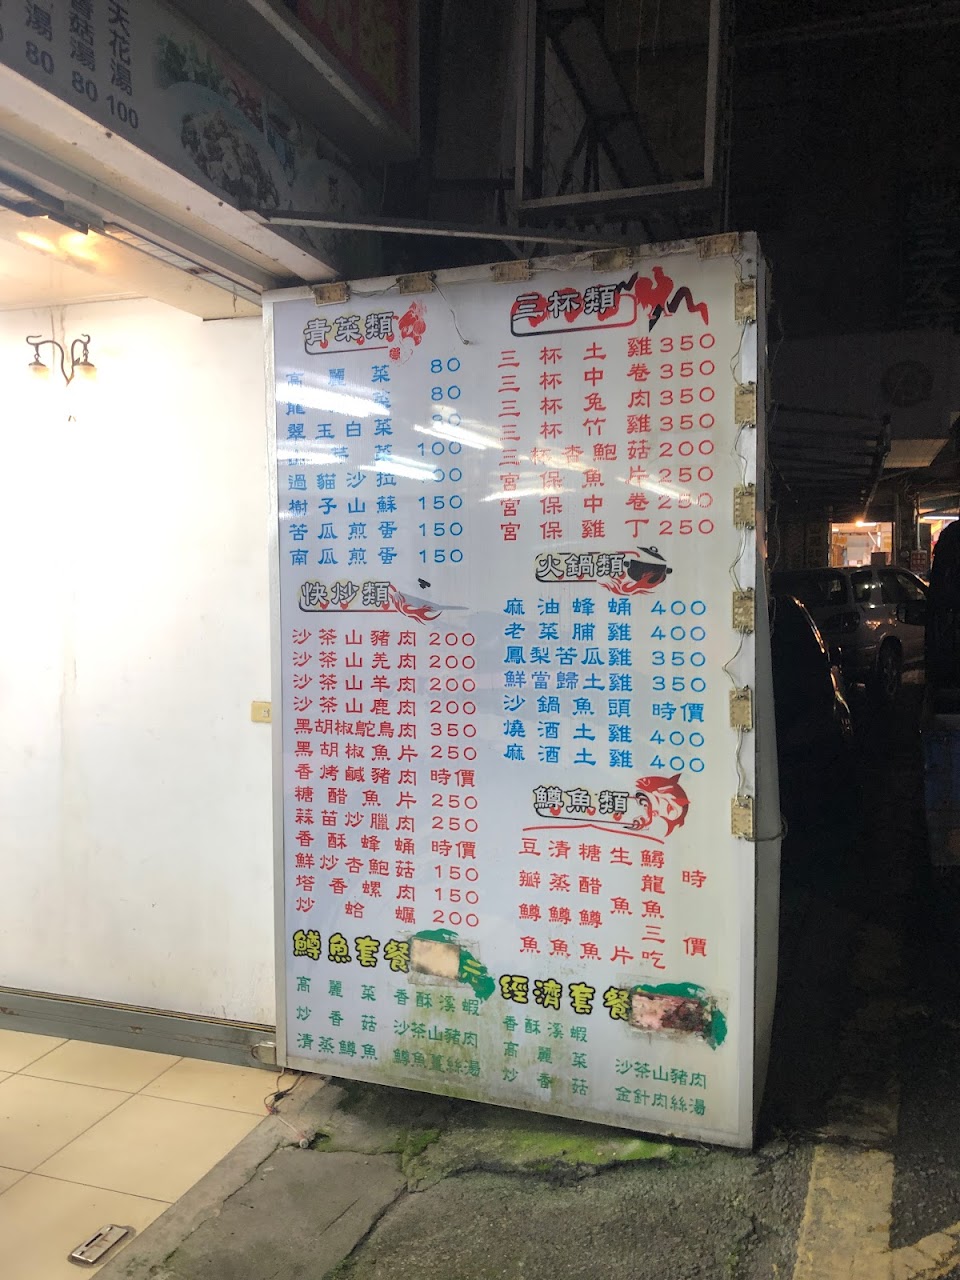 天花湯 100
香菇湯 80
湯 80
青菜類
高麗菜 80
菜
翠玉白菜 80
菜 100
過貓沙拉
樹子山蘇 150
苦瓜煎蛋 150
南瓜煎蛋 150
快炒類
沙茶山豬肉 200
沙茶山羌肉 200
沙茶山羊肉 200
沙茶山鹿肉 200
黑胡椒鴕鳥肉 350
黑胡椒魚片 250
香烤鹹豬肉 時價
糖醋魚片 250
蒜苗炒臘肉 250
香酥蜂蛹 時價
鮮炒杏鮑菇 150
塔香螺肉 150
炒蛤蠣 200
鱒魚套餐 元
高麗菜 香酥溪蝦
炒香菇 沙茶山豬肉
清蒸鱒魚 鱒魚薑絲湯
三杯類
三杯土雞 350
三杯中卷 350
三杯兔肉 350
三杯竹雞 350
三杯杏鮑菇 200
宮保魚片 250
宮保中卷 250
宮保雞丁 250
火鍋類
麻油蜂蛹 400
老菜脯雞 400
鳳梨苦瓜雞 350
鮮當歸土雞 350
沙鍋魚頭 時價
燒酒土雞 400
麻酒土雞 400
鱒魚類
豆瓣鱒魚
清蒸鱒魚
糖醋鱒魚
生魚片
鱘龍魚三吃
時價
經濟套餐
香酥溪蝦
高麗菜 沙茶山豬肉
炒香菇 金針肉絲湯